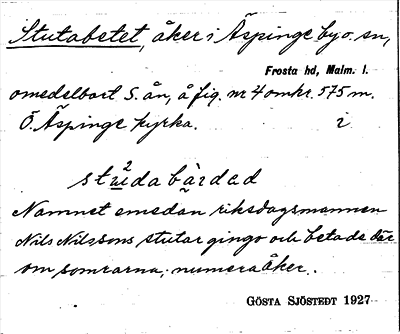 Stutabetet, åker i Äspinge by o. sn,
Frosta hd, Malm. l.
omedelbart S. ån, å fig. nr 4 omkr. 575 m.
Ö. Äspinge kyrka. 2
2
studa bàrdad
Namnet emedan riksdagsmannen
Nils Nilssons stutar gingo och betade där
om somrarna; numera åker.
GÖSTA SJÖSTEDT 1927